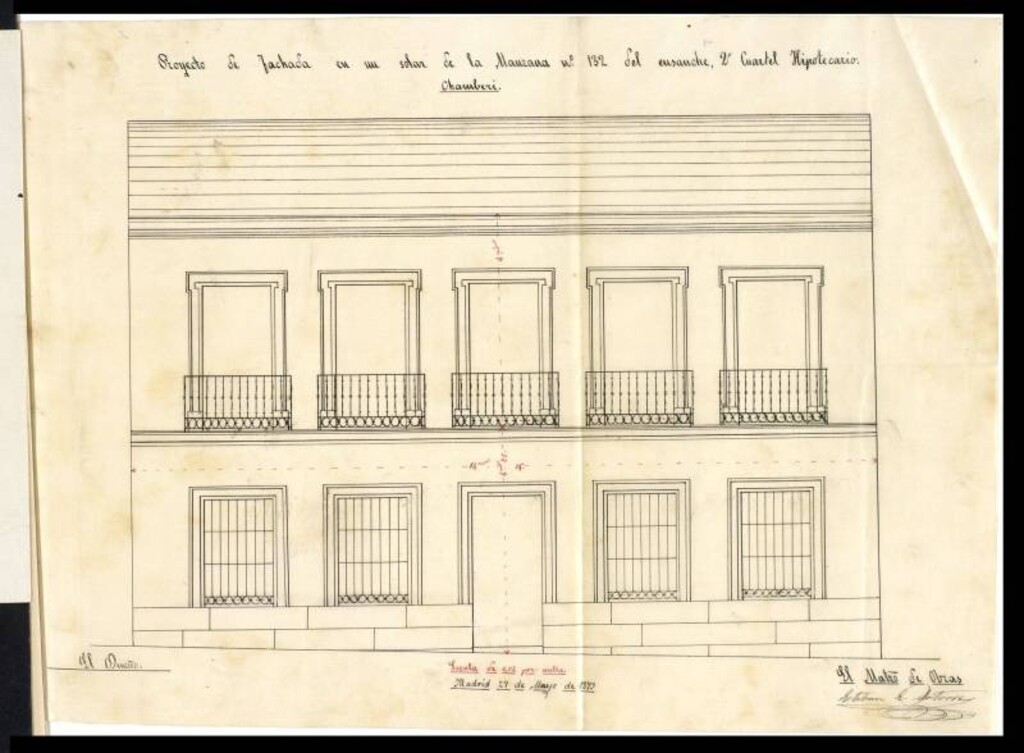 Proyecto de fachada en un solar de la Manzana nº 132 del ensanche, 2º Cuartel Hipotecario.
Chamberí.
El Dueño.
Escala de 0,02 por metro
Madrid 29 de Mayo de
El Matrõ de Obras